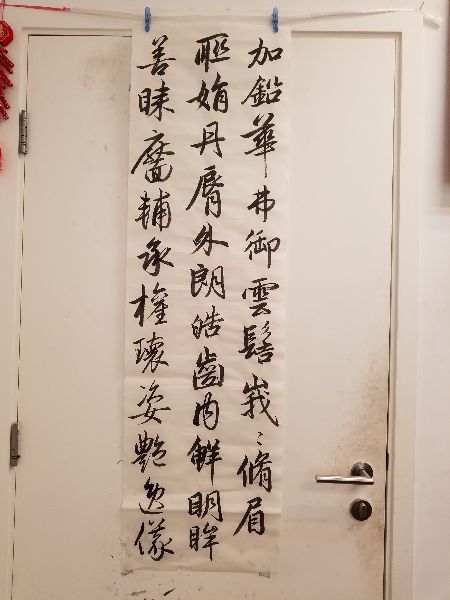 加鉛華弗御雲髻峩〻脩眉
聯娟丹脣外朗皓齒內鮮明眸
善睞靨輔承權瓌姿艷逸儀